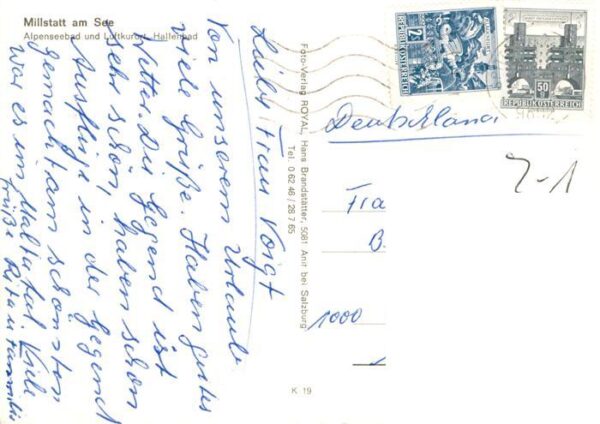 Millstatt am See
Alpenseebad und Luftkurort, Hallenbad
Liebe Frau Voigt
Von unserem Urlaub
viele Grüße. Haben gutes
Wetter. Die Gegend ist
sehr schön, haben schon
Ausflüge in der Gegend
gemacht am schönsten
war es im Maltatal. Viele
Grüße Rita u Familie
Foto-Verlag ROYAL, Hans Brandstätter, 5081 Anif bei Salzburg
Tel. 0 62 46 / 28 7 65
K 19
REPUBLIK ÖSTERREICH
50 g
REPUBLIK ÖSTERREICH
Deutschland
7-1
Fra
B.
1000